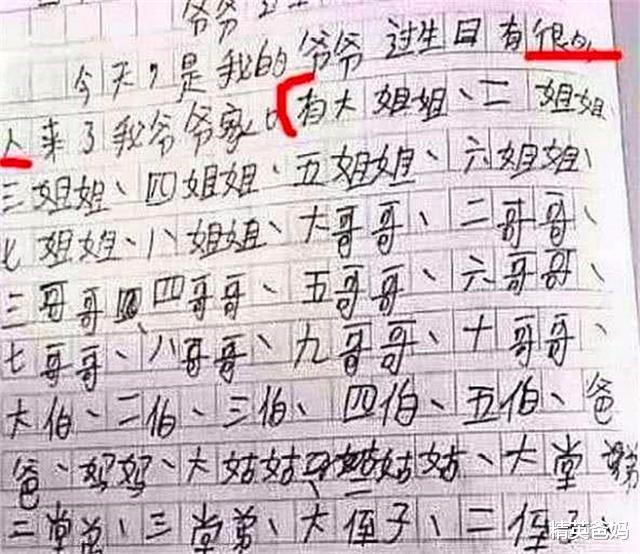 爷爷
今天,是我的爷爷过生日有很多
人来了我爷爷家 有大姐姐、二姐姐
三姐姐、四姐姐、五姐姐、六姐姐、
七姐姐、八姐姐、大哥哥、二哥哥、
三哥哥 四哥哥、五哥哥、六哥哥、
七哥哥、八哥哥、九哥哥、十哥哥、
大伯、二伯、三伯、四伯、五伯、爸
爸、妈妈、大姑姑 二姑姑、大堂弟
二堂弟、三堂弟、大侄子、二侄子、
精英爸妈